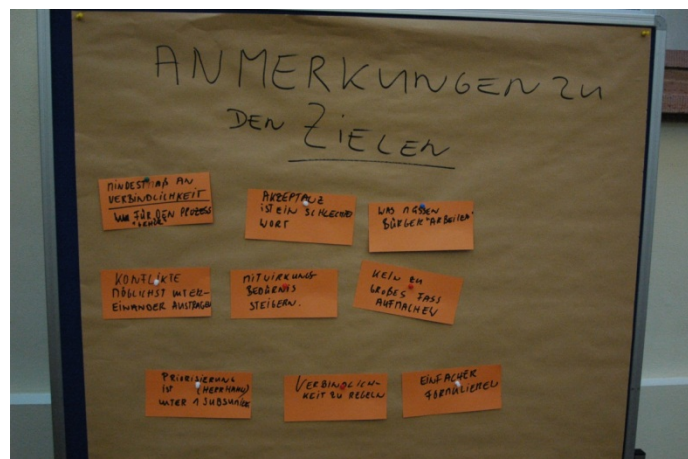 ANMERKUNGEN ZU
DEN ZIELEN
MINDESTMAß AN
VERBINDLICHKEIT
FÜR DEN PROZESS
AKZEPTANZ
IST EIN SCHLECHTES
WORT
WAS MÜSSEN
BÜRGER "ARBEITEN"
KONFLIKTE
MÖGLICHST UNTER-
EINANDER AUSTRAGEN
MITWIRKUNG
STEIGERN.
KEIN ZU
GROßES FASS
AUFMACHEN
PRIORISIERUNG
IST
UNTER 1
VERBINDLICH-
KEIT ZU REGELN
EINFACHER
FORMULIEREN